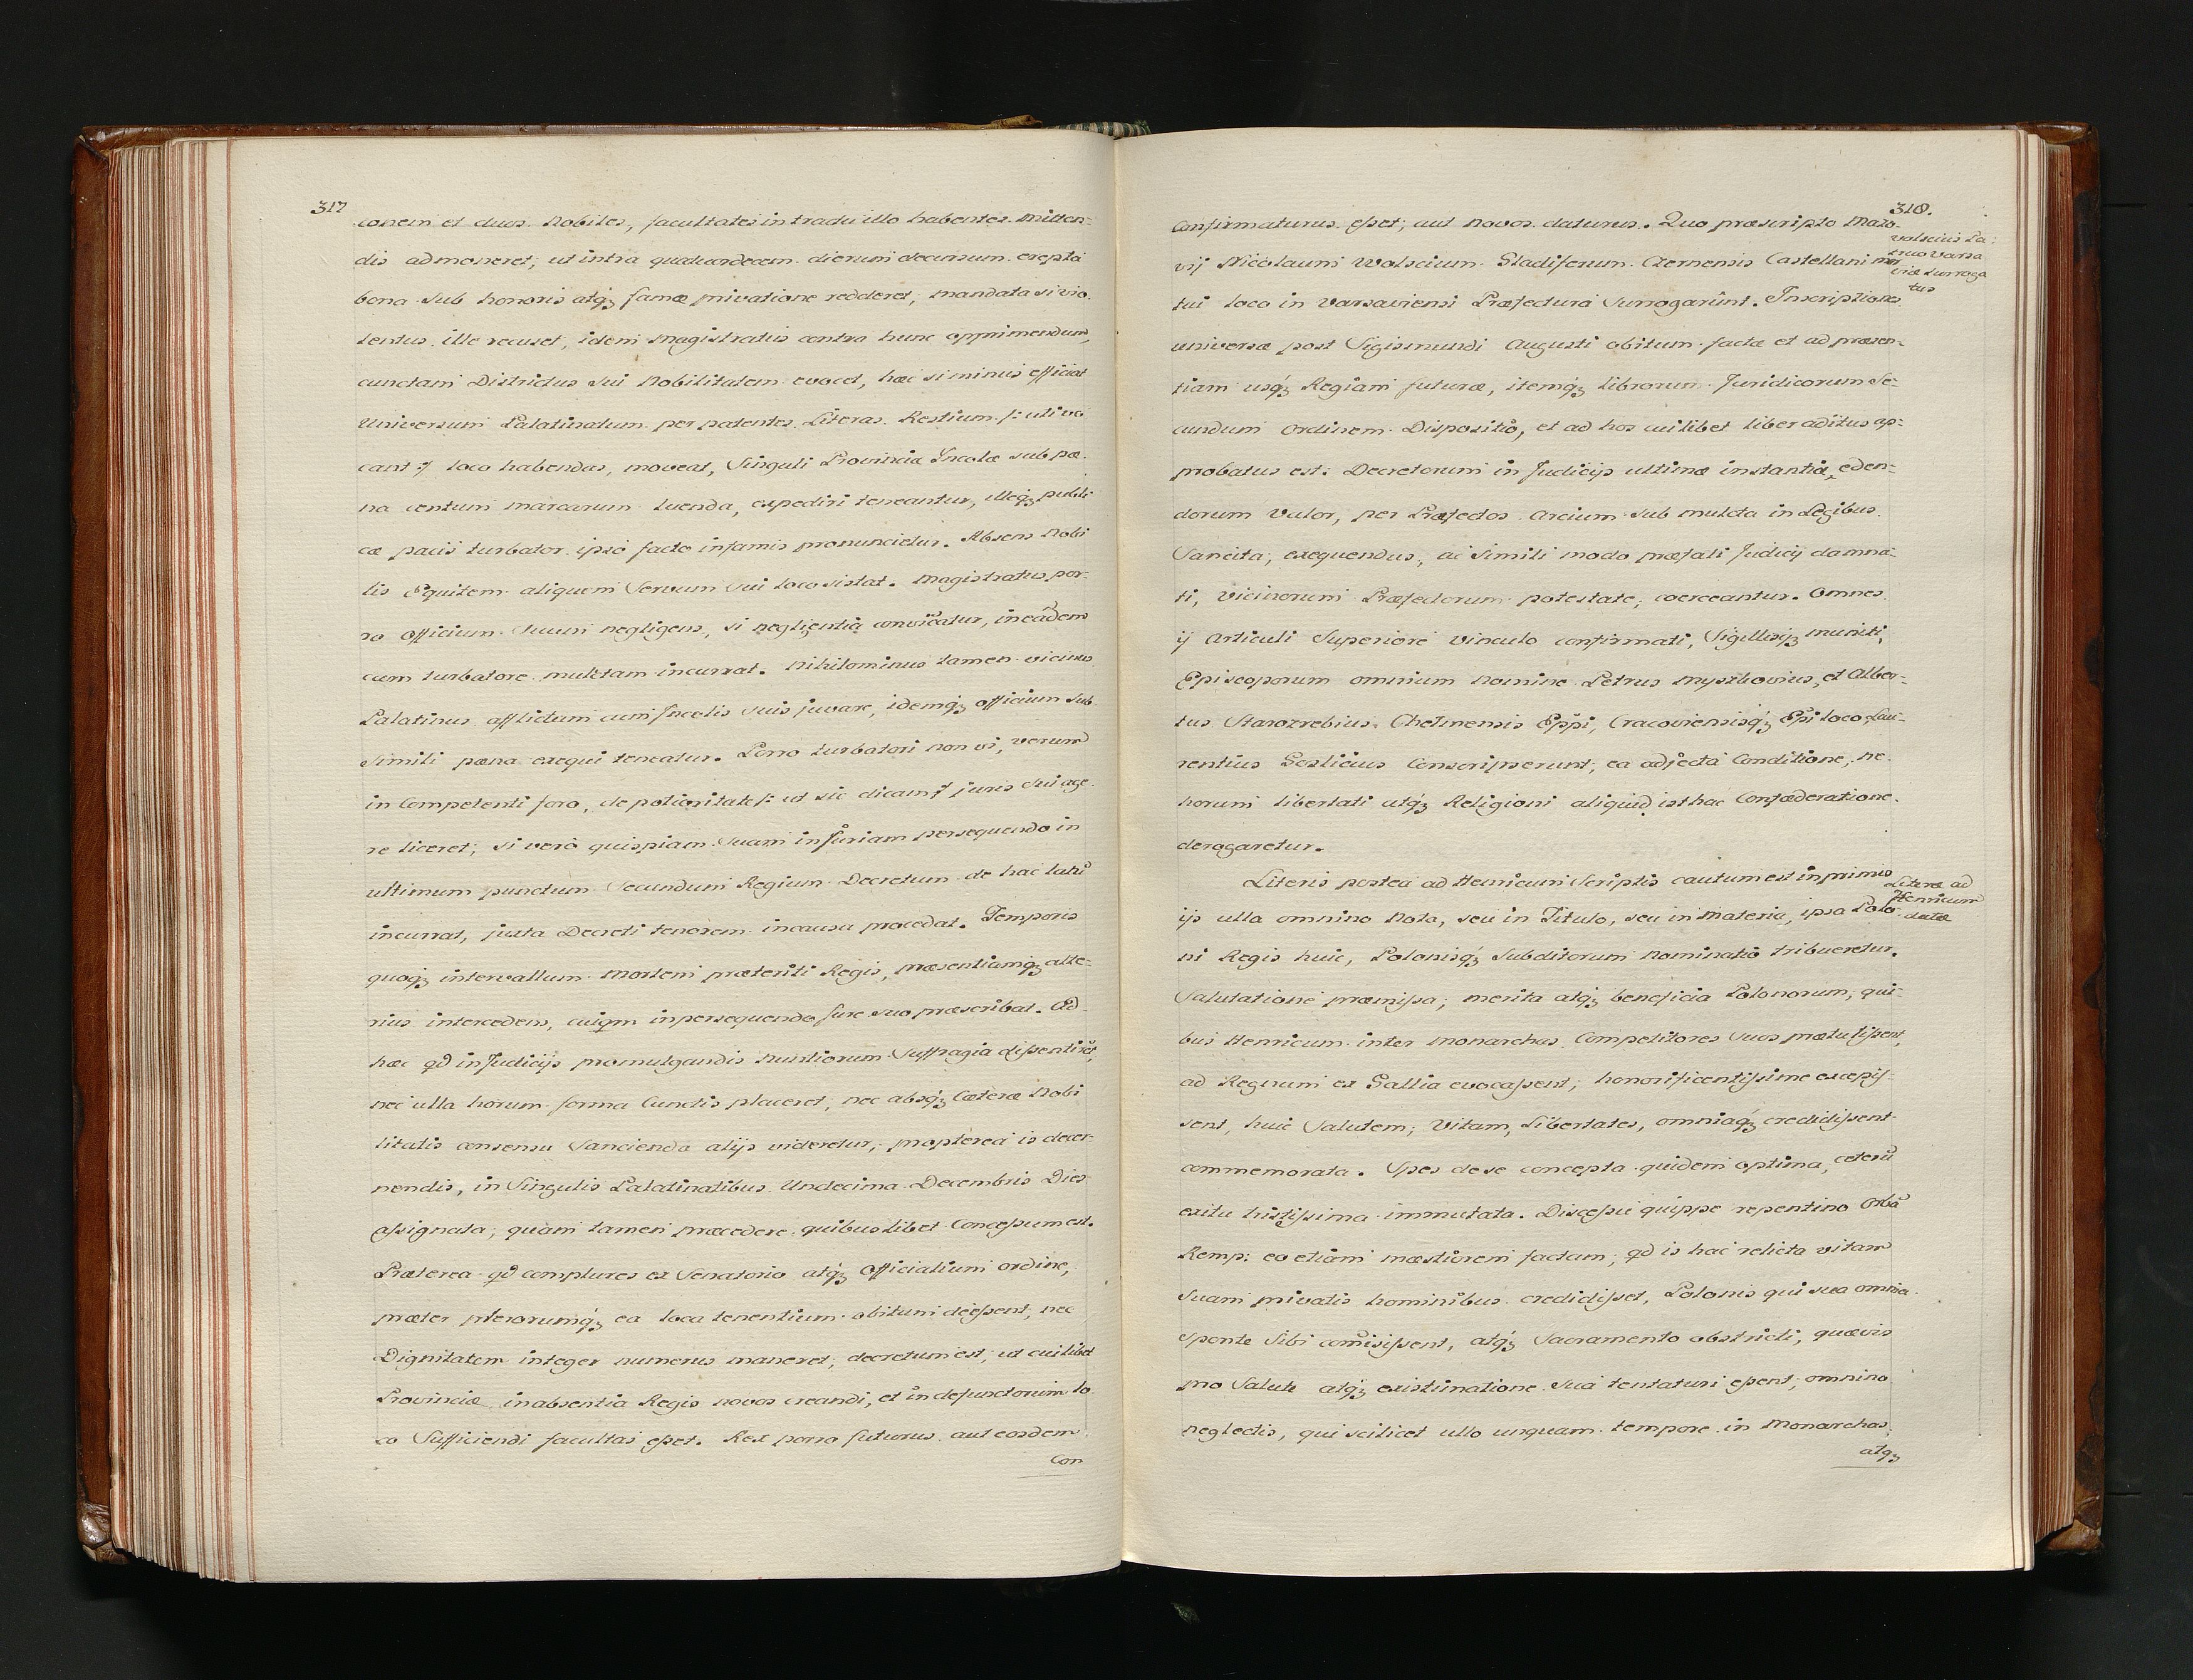 317
conem et duos Nobiles, facultates in tractu illo habentes mitten-
dis admoneret; ut intra quatuordecem dierum decursum erepta
bona sub honoris atq; famæ privatione redderet; mandata si vio
lentus ille recuset, idem Magistratus contra hunc opprimendum,
cunctam Districtus sui Nobilitatem evocet, hæc si minus efficiat
Universum Palatinatum per patentes Literas Restium /: uti vo
cant :/ loco habendas, moveat, Singuli Provinciæ Incolæ sub pæ
na centum marcarum luenda, expediri teneantur, illeq; publi
cæ pacis turbator ipso facto infamis pronuncietur. Absens Nobi
lis Equitem aliquem Servum sui loco sistat. Magistratus por-
ro Officium suum negligens, si negligentia convicatur, in eadem
cum turbatore mulctam incurrat. Nihilominus tamen vicinus
Palatinus afflictum cum Incolis suis juvare, idemq; officium sub
simili pæna exequi teneatur. Porro turbatori non vi, verum
in Competenti foro, de potioritate /: ut sic dicam :/ juris sui age
re liceret; si vero quispiam suam injuriam persequendo in
ultimum punctum secundum Regium Decretum de hac latu
incurrat, juxta Decreti tenorem in causa procedat. Temporis
quoq; intervallum Mortem præteriti Regis, præsentiamq; alte-
rius intercedens, cuiqm in persequendo jure suo præscribat. Ad
hæc qd in Judicijs promulgandis Nuntiorum Suffragia dissentiret,
nec ulla horum forma Cunctis placeret; nec absq; Cæteræ Nobi
litatis consensu Sancienda alijs videretur; propterea is decer-
nendis, in Singulis Palatinatibus Undecima Decembris Dies
assignata; quam tamen præcedere quibuslibet Concessum est.
Præterea qd complures ex Senatorio atq; Officialium ordine,
præter pterorumq; ea loca tenentium obitum deessent, nec
Dignitatem integer numerus maneret; decretum est, ut cuilibet
Provinciæ in absentia Regis novos creandi, et in defunctorum lo
co Sufficiendi facultas esset. Rex porro futurus aut eosdem
Con
318.
Confirmaturus esset; aut novos daturus. Quo præscripto Mazo-
vij Nicolaum Wolscium Gladiferum Czernensis Castellani mor
tui loco in Varsaviensi Præfectura Surrogarunt. Inscriptiones
universæ post Sigismundi Augusti obitum factæ et ad præsen-
tiam usq; Regiam futuræ, itemq; librorum Juridicorum se-
cundum Ordinem Dispositio, et ad hos cuilibet liber aditus ap-
probatus est: Decretorum in Judicijs ultimæ instantiæ eden-
dorum valor, per Præfectos Arcium sub mulcta in Legibus
Sancita, exequendus, ac Simili modo præfati Judicij damna-
ti, vicinorum Præfectorum potestate, coerceantur. Omnes
ij Articuli Superiore vinculo confirmati, Sigillisq; muniti,
Episcoporum omnium nomine Petrus Myszkovius, et Alber-
tus Starozrebius Chelmensis Eppi, Cracoviensisq; Epi loco Lau-
rentius Goslicius Conscripserunt; ea adjecta Conditione, ne
horum libertati atq; Religioni aliquid isthac Confæderatione
derogaretur.
Literis postea ad Henricum scriptis cautum est in primis
ijs ulla omnino Nota, seu in Titulo, seu in Materia, ipsa Polo
ni Regis huic, Polonisq; Subditorum Nominatio tribueretur.
Salutatione præmissa; merita atq; beneficia Polonorum, qui-
bus Henricum inter Monarchas Competitores suos prætulissent,
ad Regnum ex Gallia evocassent; honorificentissime excepis-
sent, huic Salutem, Vitam, Libertates, omniaq; credidissent
commemorata. Spes de se concepta quidem optima, ceterū
exitu tristissima immutata. Discessu quippe repentino Orbā
Remp: eo etiam mæstiorem factam; qd is hac relicta vitam
suam privatis hominibus credidisset, Polonis qui sua omnia
sponte Sibi comisissent, atq; Sacramento obstricti, quævis
pro Salute atq; existimatione sua tentaturi essent; omnino
neglectis, qui scilicet ullo unquam tempore in Monarchas
atq;
Volscius Pa:
truo Varsa
viæ surroga
tus
Literæ ad
Henricum
datæ